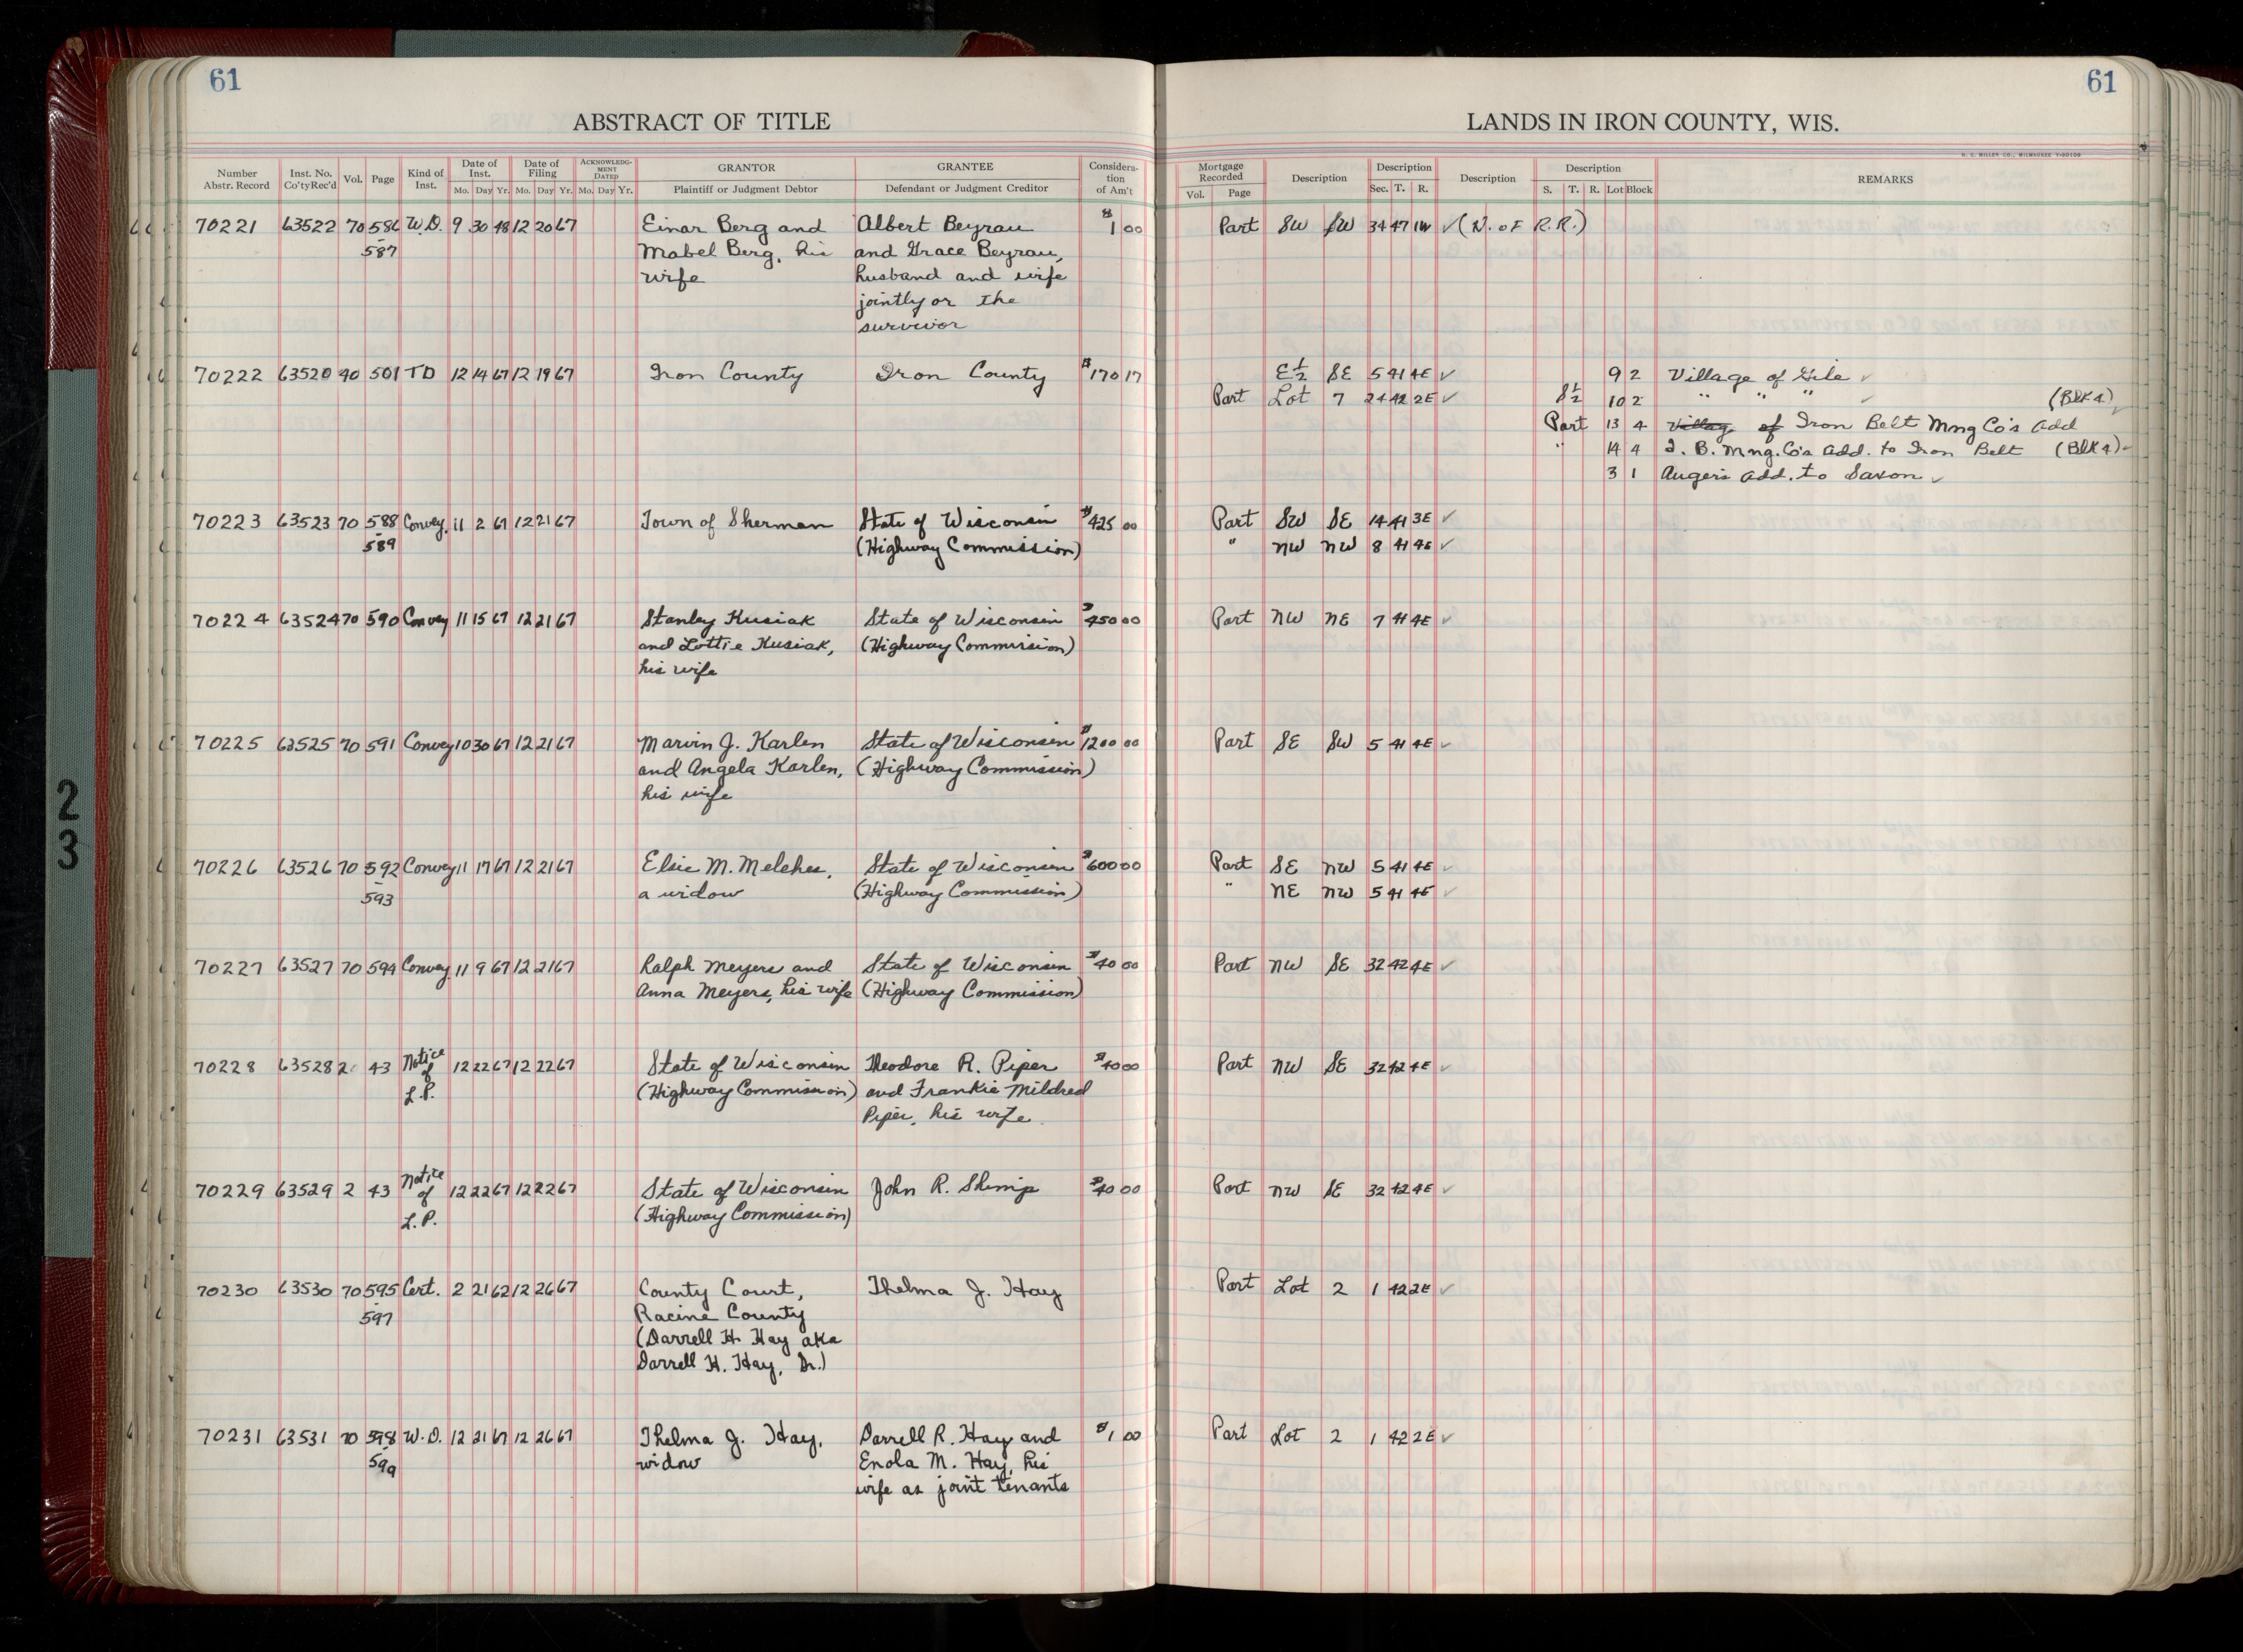 61
ABSTRACT OF TITLE
Number Abstr. Record Inst. No. Co'ty Rec'd Vol. Page Kind of Inst. Date of Inst. Mo. Day Yr. Date of Filing Mo. Day Yr. ACKNOWLEDGMENT DATED Mo. Day Yr. GRANTOR Plaintiff or Judgment Debtor GRANTEE Defendant or Judgment Creditor Consideration of Am't
70221 63522 70 586 W.D. 9 30 48 12 20 67 Einar Berg and Albert Beyrau $1 00
587 Mabel Berg, his and Grace Beyrau,
wife husband and wife
jointly or the
survivor
70222 63520 40 501 TD 12 14 67 12 19 67 Iron County Iron County $170 17
70223 63523 70 588 Convey. 11 2 67 12 21 67 Town of Sherman State of Wisconsin $425 00
589 (Highway Commission)
70224 63524 70 590 Convey 11 15 67 12 21 67 Stanley Kusiak State of Wisconsin $450 00
and Lottie Kusiak, (Highway Commission)
his wife
70225 63525 70 591 Convey 10 30 67 12 21 67 Marvin J. Karlen State of Wisconsin $1200 00
and Angela Karlen, (Highway Commission)
his wife
70226 63526 70 592 Convey 11 17 67 12 21 67 Elsie M. Melcher, State of Wisconsin $600 00
593 a widow (Highway Commission)
70227 63527 70 594 Convey 11 9 67 12 21 67 Ralph Meyers and State of Wisconsin $40 00
Anna Meyers, his wife (Highway Commission)
70228 63528 2 43 Notice of L.P. 12 22 67 12 22 67 State of Wisconsin Theodore R. Piper $40 00
(Highway Commission) and Frankie Mildred
Piper, his wife.
70229 63529 2 43 Notice of L.P. 12 22 67 12 22 67 State of Wisconsin John R. Shimp $40 00
(Highway Commission)
70230 63530 70 595 Cert. 2 21 62 12 26 67 County Court, Thelma J. Hay
597 Racine County
(Darrell H. Hay aka
Darrell H. Hay, Sr.)
70231 63531 70 598 W.D. 12 21 67 12 26 67 Thelma J. Hay, Darrell R. Hay and $1 00
599 widow Enola M. Hay, his
wife as joint tenants
61
LANDS IN IRON COUNTY, WIS.
H. C. MILLER CO., MILWAUKEE
Mortgage Recorded Vol. Page Description Description Sec. T. R. Description Description S. T. R. Lot Block REMARKS
Part SW SW 34 47 1W ✓ (N. of R.R.)
E½ SE 5 41 4E ✓ 9 2 Village of Gile ✓
Part Lot 7 24 42 2E ✓ S½ 10 2 " " " ✓ (Blk 4)
Part 13 4 Village of Iron Belt Mng Co's Add ✓
" 14 4 I. B. Mng. Co's Add. to Iron Belt (Blk 4) ✓
3 1 Auger's Add. to Saxon ✓
Part SW SE 14 41 3E ✓
" NW NW 8 41 4E ✓
Part NW NE 7 41 4E ✓
Part SE SW 5 41 4E ✓
Part SE NW 5 41 4E ✓
" NE NW 5 41 4E ✓
Part NW SE 32 42 4E ✓
Part NW SE 32 42 4E ✓
Part NW SE 32 42 4E ✓
Part Lot 2 1 42 2E ✓
Part Lot 2 1 42 2E ✓
23